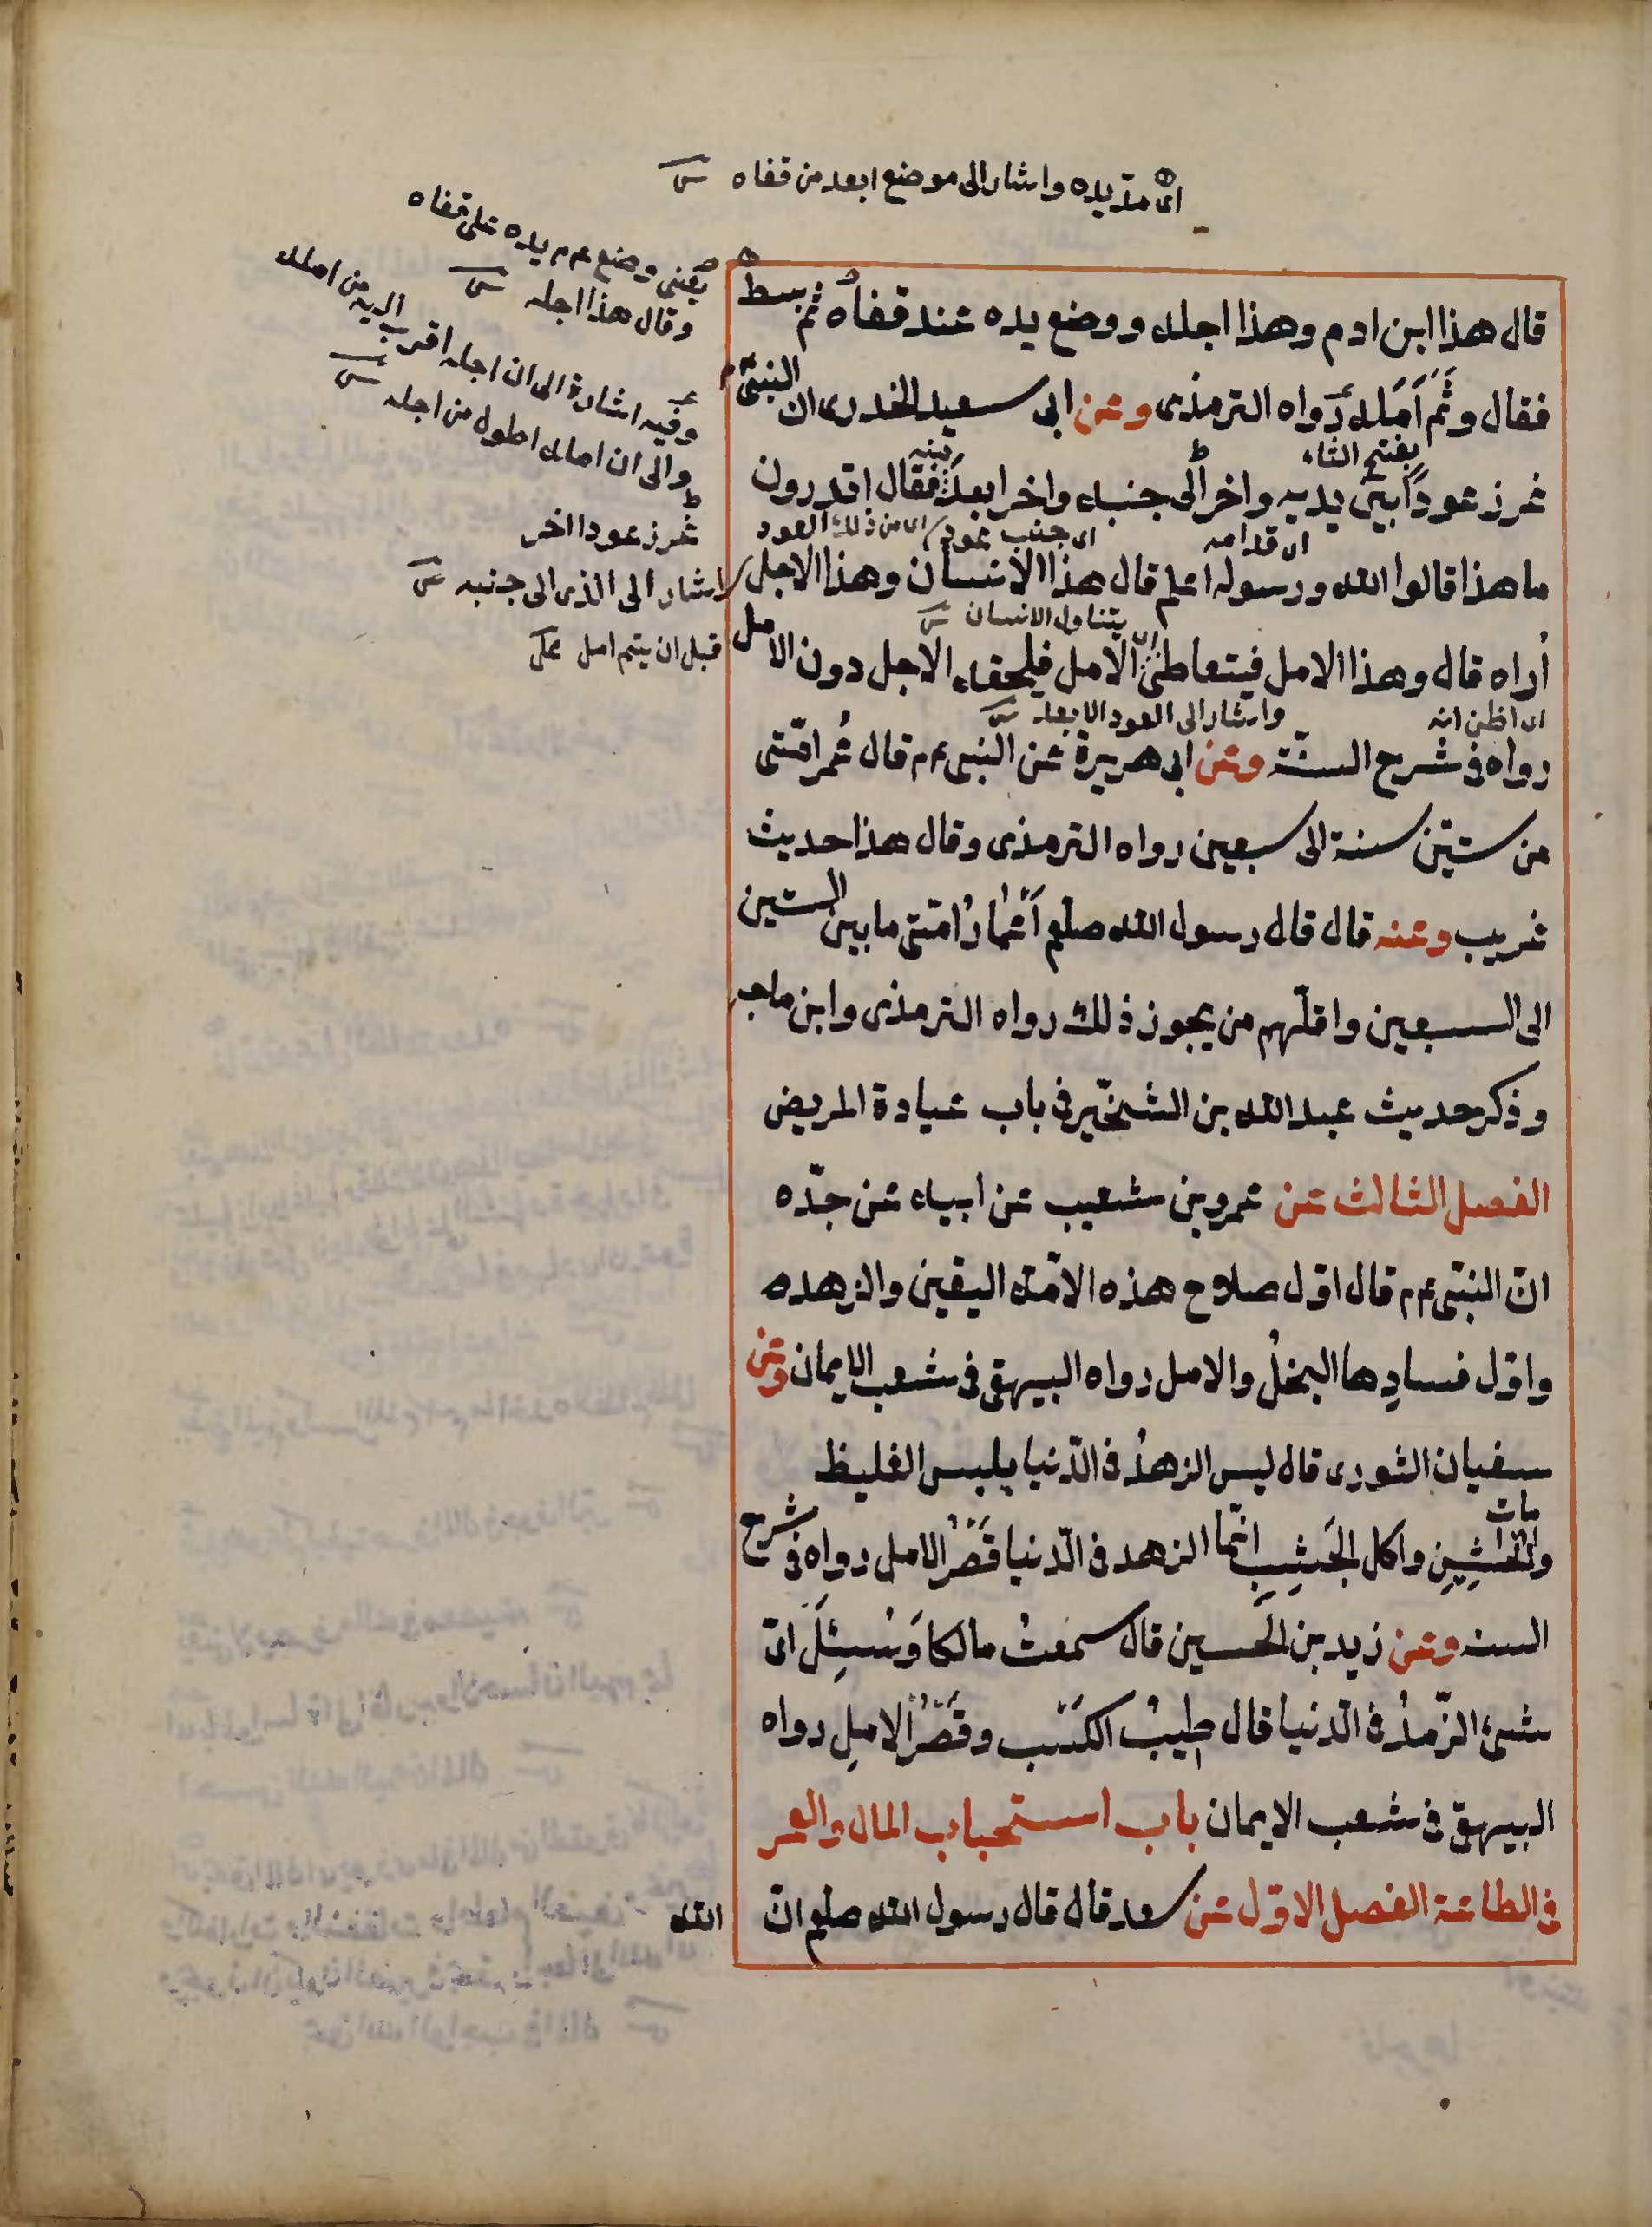 اى مدّ يده واشار الى موضع ابعد من قفاه
يعنى وضع عم يده على قفاه
وقال هذا اجله
وفيه اشارة الى ان اجله اقرب اليه من امله
والى ان امله اطول من اجله
قال هذا ابن ادم وهذا اجله ووضع يده عند قفاه ثم بسط
فقال وثَمَّ اَمَله رواه الترمذى وعن ابى سعيد الخدرى ان النبىّ عم
بفتح الثاء
غرز عودًا بين يديه واخر الى جنبه واخر ابعد منه فقال اتدرون
غرز عودا اخر
اى قدامه
اى جنب عود
اى من ذلك العود
ما هذا قالوا الله ورسوله اعلم قال هذا الانسان وهذا الاجل
اشار الى الذى الى جنبه
يتناول الانسان
اُراه قال وهذا الامل فيتعاطى الامل فيلحقه الاجل دون الامل
قبل ان يتم امل
اى اظن انه
واشار الى العود الابعد
رواه فى شرح السنّة وعن ابى هريرة عن النبى عم قال عُمر امّتى
من ستّين سنة الى سبعين رواه الترمذى وقال هذا حديث
غريب وعنه قال قال رسول الله صلعم اَعْمارُ امّتى ما بين الستين
الى السبعين واقلّهم من يجوز ذلك رواه الترمذى وابن ماجه
وذكر حديث عبد الله بن الشخّير فى باب عيادة المريض
الفصل الثالث عن عمرو بن شعيب عن ابيه عن جدّه
انّ النبّى عم قال اوّل صلاح هذه الامّة اليقين والزهد
واوّل فسادِها البخلُ والامل رواه البيهقى فى شعب الايمان وعن
سفيان الثورى قال ليس الزهدُ فى الدّنيا بلبس الغليظ
والخَشِنِ واكل الجَشِبِ انّما الزهد فى الدّنيا قَصْرُ الامل رواه فى شرح
السنه وعن زيد بن الحسين قال سمعتُ مالكا وَسُئِلَ اىّ
شىء الزّهدُ فى الدّنيا قال طِيبُ الكَسْب وقَصْرُ الاملِ رواه
البيهقىّ فى شعب الايمان باب استحباب المال والعمر
فى الطاعة الفصل الاوّل عن سعد قال قال رسول الله صلعم انّ
الله